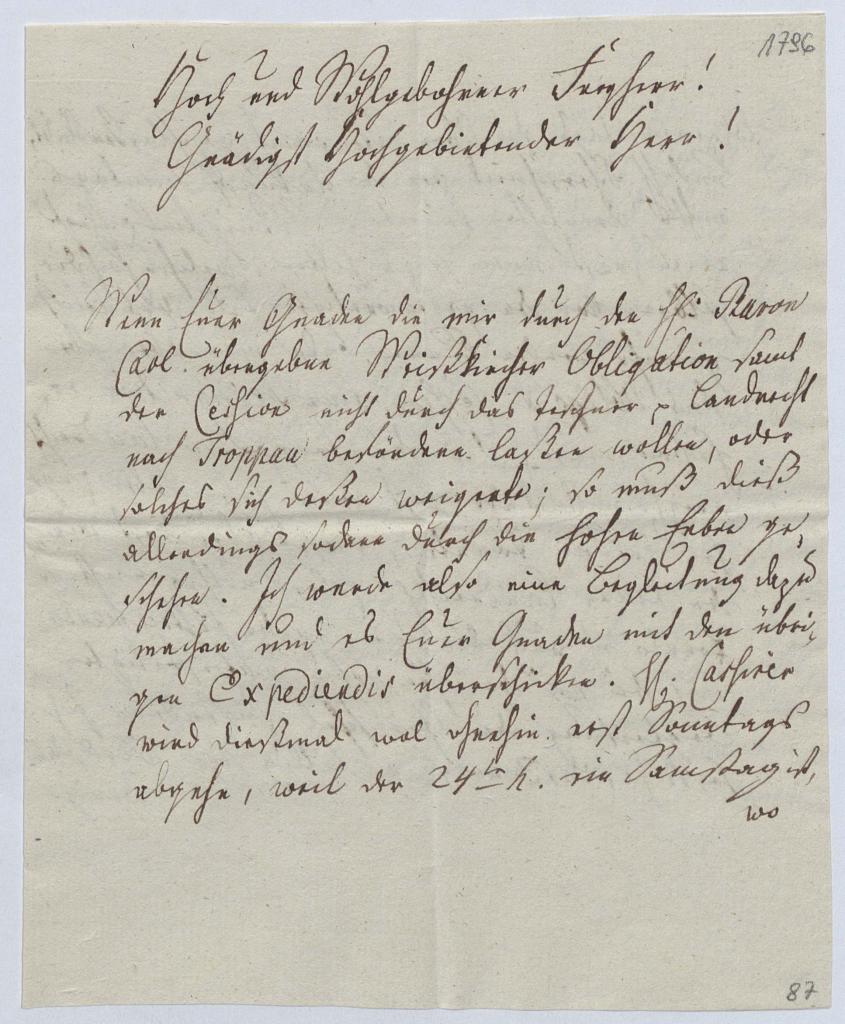 1796
Hoch und Wohlgebohrner Freyherr!
Gnädigst Hochgebietender Herr!
Wenn Euer Gnaden die mir durch den H: Baron
Carl übergebne Weißkircher Obligation samt
der Cession nicht durch das Teschner Landrecht
nach Troppau befördern laßen wollen, oder
solches sich deßen weigerte; so muß dieß
allerdings sodann durch die hohen Erben ge,
schehen. Ich werde also eine Begleitung dazu
machen und es Euer Gnaden mit den übri,
gen Expediendis überschicken. H: Cassirer
wird dießmal wol ohnehin erst Sonntags
abgehn, weil der 24te h. ein Samstag ist,
wo
87